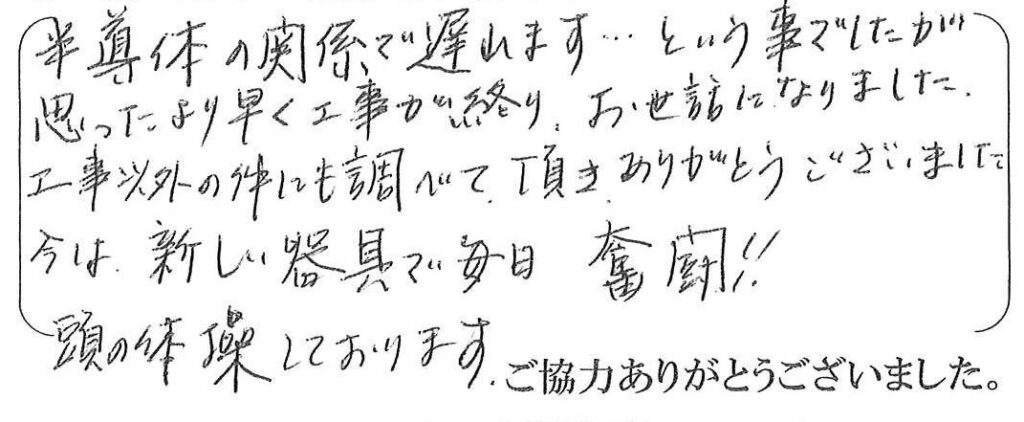 半導体の関係で遅れます…という事でしたが
思ったより早く工事が終り、お世話になりました.
工事以外の件にも調べて頂きありがとうございました
今は、新しい器具で毎日 奮闘!!
頭の体操しております.
ご協力ありがとうございました。